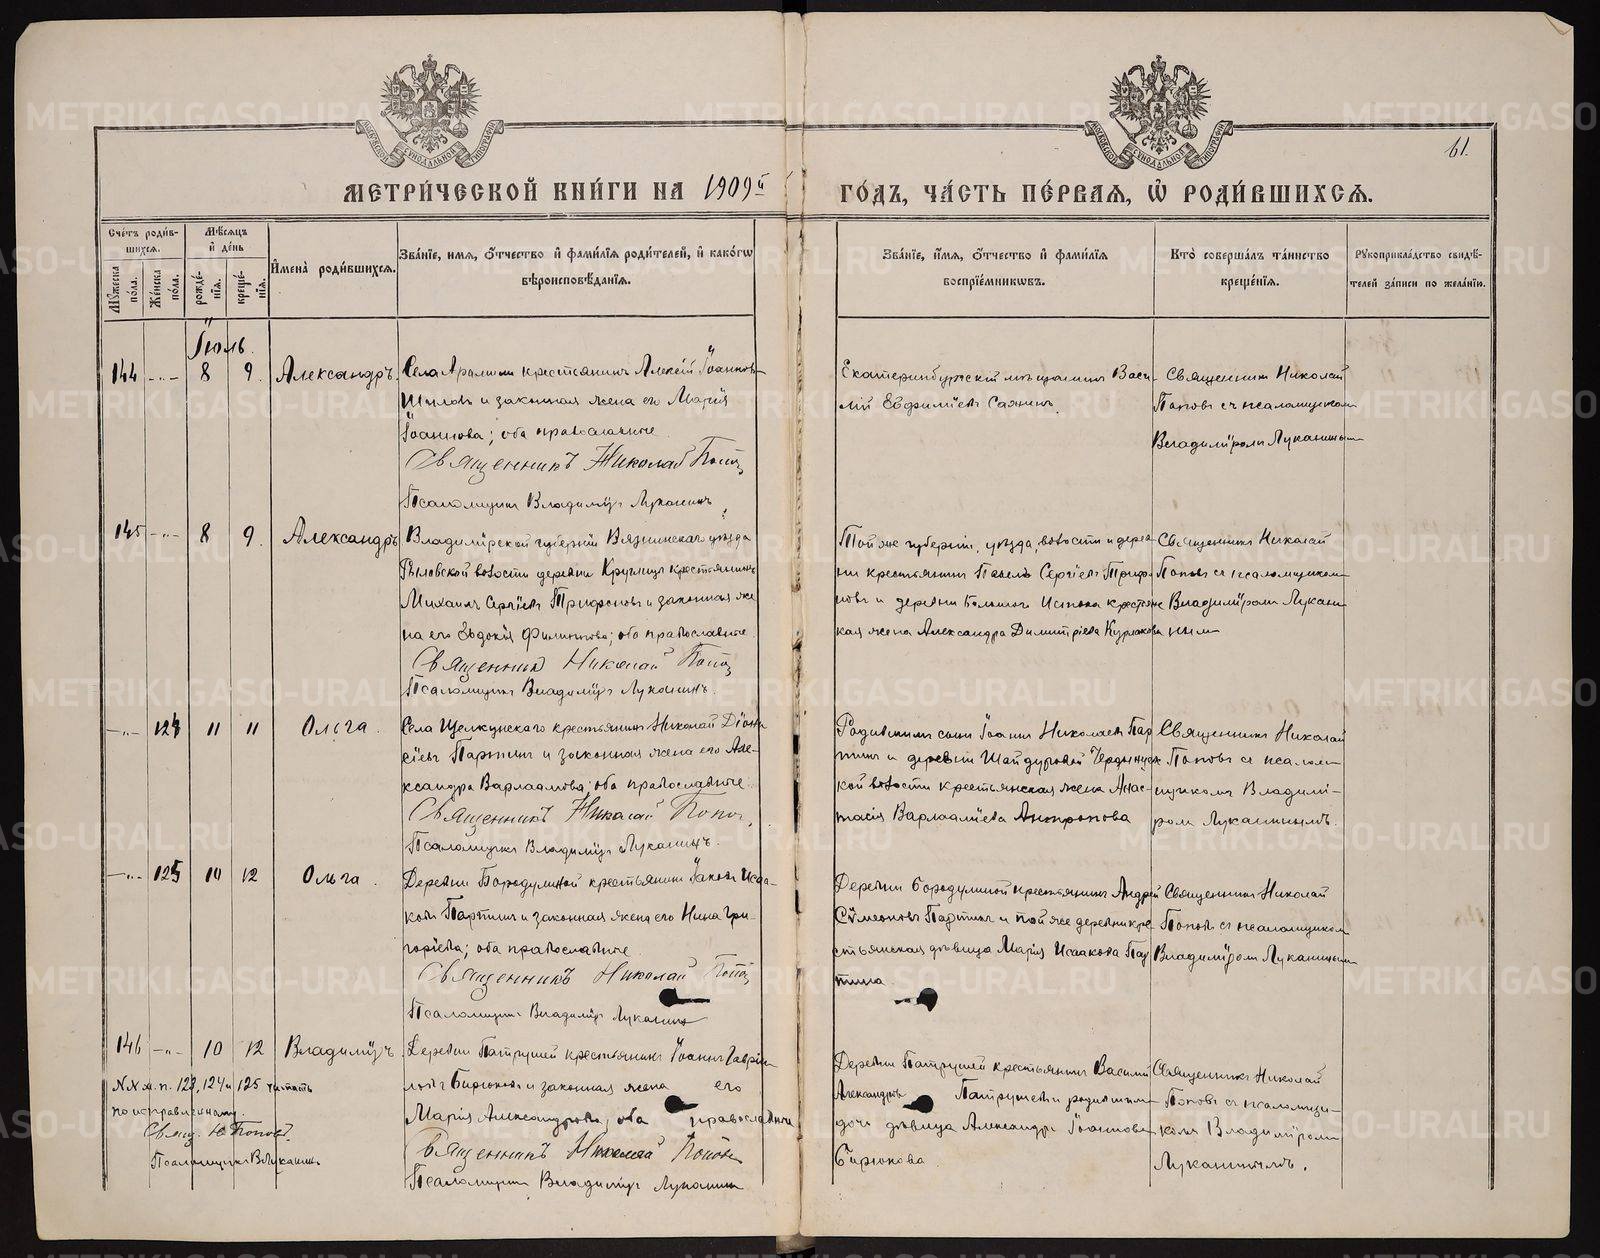 МОСКОВСКОЙ СѴНОДАЛЬНОЙ ТИПОГРАФІИ
МОСКОВСКОЙ СѴНОДАЛЬНОЙ ТИПОГРАФІИ
61.
МЕТРИ́ЧЕСКОЙ КНИ́ГИ НА 1909й
ГО́ДЪ, ЧА́СТЬ ПЕ́РВАѦ, Ѽ РОДИ́ВШИХСѦ.
Сче́тъ роди́в-
шихся.
Мꙋ́жеска по́ла.
Же́нска по́ла.
Мѣ́сяцъ
и҆ де́нь
рожде́-
нїя.
креще́-
нїя.
И҆мена̀ роди́вшихся.
Зва́нїе, имя, ѻ҆́тчество и҆ фами́лїя роди́телей, и҆ како́гѡ
вѣроисповѣ́данїя.
Зва́нїе, и҆́мя, ѻ҆́тчество и҆ фами́лїя
воспрїе́мникѡвъ.
Кто̀ соверша́лъ та́инство
креще́нїя.
Рꙋкоприкла́дство свидѣ́-
телей за́писи по жела́нїю.
Іюль.
144 -"- 8 9. Александръ.
Села Арамили крестьянинъ Алексій Іоаннов
Шиловъ и законная жена его Марія
Іоаннова; оба православные.
Священникъ Николай Поповъ
Псаломщикъ Владиміръ Луканинъ
Екатеринбургскій мѣщанинъ Васи-
лій Евфиміевъ Саянинъ.
Священникъ Николай
Поповъ съ псаломщикомъ
Владиміромъ Луканинымъ
145 -"- 8 9. Александръ
Владимірской губерніи Вязниковскаго уѣзда
волости деревни Круглицъ крестьянинъ
Михаилъ Сергіевъ Трифоновъ и законная же
на его Евдокія Филиппова; оба православные.
Священникъ Николай Поповъ
Псаломщикъ Владиміръ Луканинъ.
Той же губерніи, уѣзда, волости и дерев
ни крестьянинъ Павелъ Сергіевъ Трифо-
новъ и деревни Большого Истока крестьянс
кая жена Александра Димитріева Курлакова
Священникъ Николай
Поповъ съ псаломщиком
Владиміромъ Лукани
нымъ
-"- 124 11 11 Ольга.
Села Щелкунскаго крестьянинъ Николай Діони
сіевъ Партинъ и законная жена его Але-
ксандра Варлаамова; оба православные.
Священникъ Николай Поповъ.
Псаломщикъ Владиміръ Луканинъ.
Родившихъ сынъ Іоаннъ Николаевъ Пар
тинъ и деревни Шайдуровой Чердынцев
кой волости крестьянская жена Анас-
тасія Варлаамова Антропова
Священникъ Николай
Поповъ съ псалом-
щикомъ Владимі-
ромъ Луканинымъ.
-"- 125 10 12 Ольга.
Деревни Бородулиной крестьянинъ Іаковъ Исаа-
ковъ Партинъ и законная жена его Нина Гри-
горіева; оба православные
Священникъ Николай Поповъ
Псаломщикъ Владиміръ Луканинъ
Деревни Бородулиной крестьянинъ Андрей
Сѵмеоновъ Партинъ и той же деревни кре
стьянская дѣвица Марія Исаакова Пар
тина.
Священникъ Николай
Поповъ съ псаломщиком
Владиміромъ Луканинымъ
146 -"- 10 12 Владиміръ
Деревни Патрушей крестьянинъ Іоаннъ Гаврiи
ловъ Бирюковъ и законная жена его
Марія Александрова; оба православные
Священникъ Николай Поповъ
Псаломщикъ Владиміръ Луканинъ
Деревни Патрушей крестьянинъ Василій
Александровъ Патрушевъ и родившихъ
дочь дѣвица Александра Іоаннова
Бирюкова.
Священникъ Николай
Поповъ съ псаломщи-
комъ Владиміромъ
Луканинымъ.
№№ ж. п. 123, 124 и 125 читать
по исправленному.
Свящ. Н. Поповъ.
Псаломщикъ В. Луканинъ
METRIKI.GASO-URAL.RU